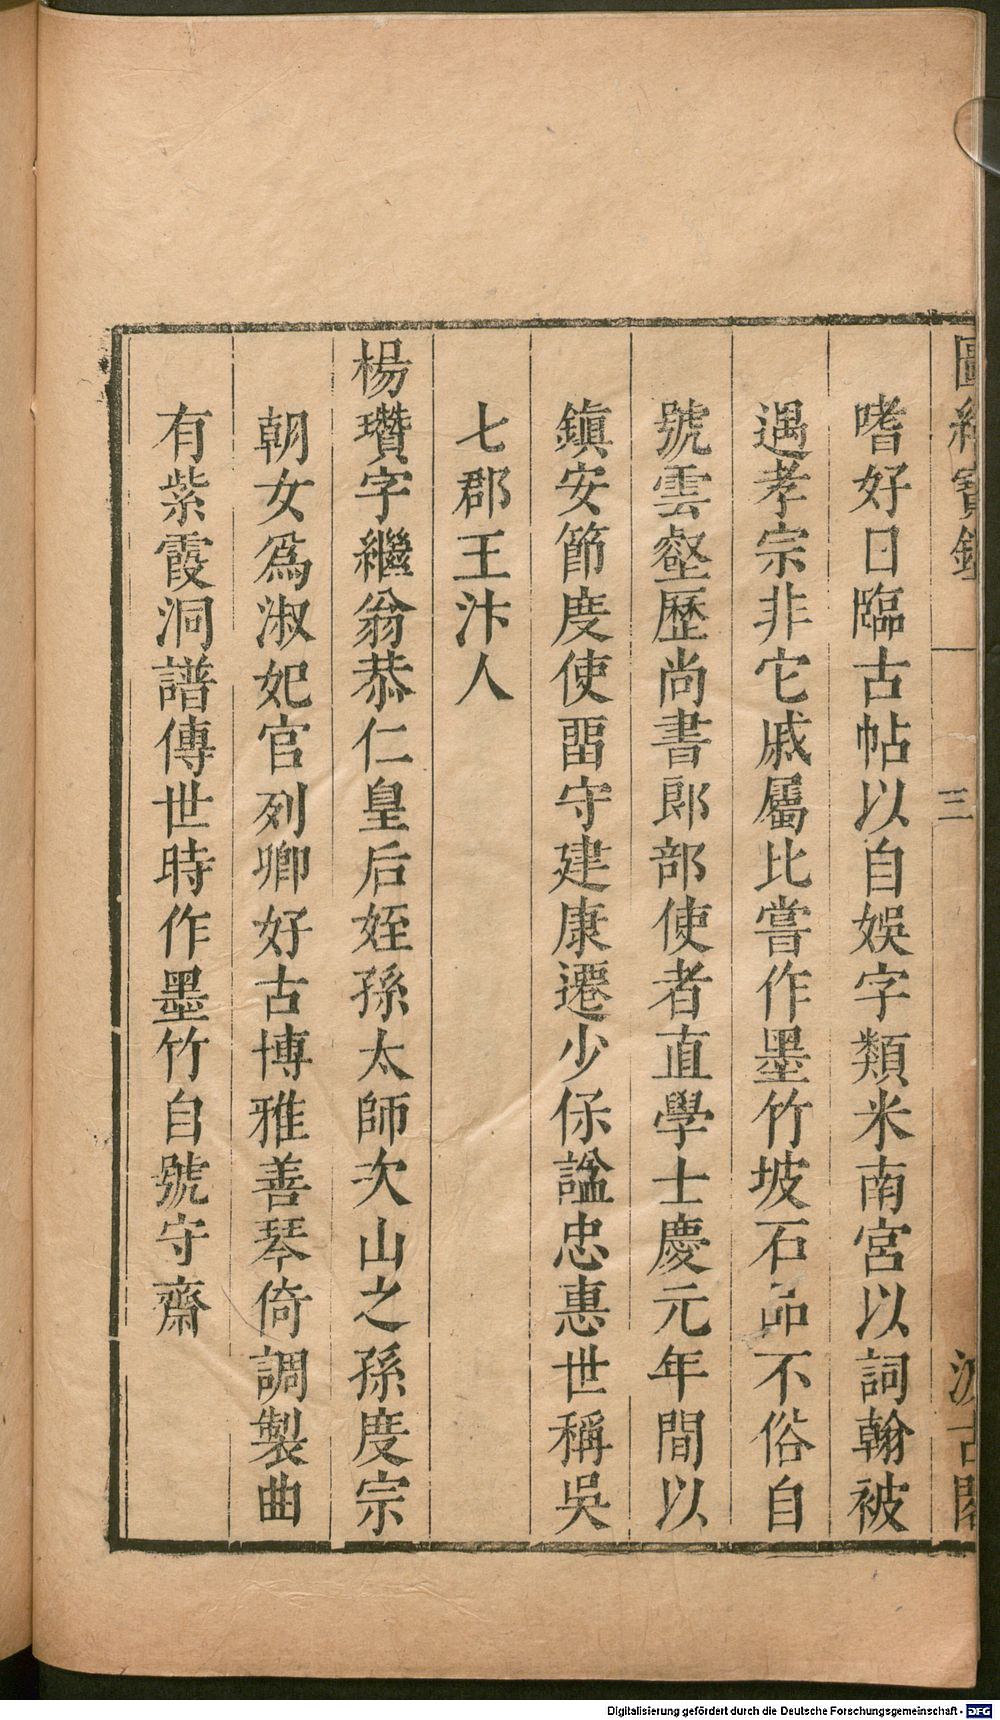 圖繪寶鑑 三 汲古閣
嗜好日臨古帖以自娛字類米南宮以詞翰被
遇孝宗非它戚屬比嘗作墨竹坡石品不俗自
號雲壑歷尚書郎部使者直學士慶元年間以
鎮安節度使畱守建康遷少保諡忠惠世稱吳
七郡王汴人
楊瓚字繼翁恭仁皇后姪孫太師次山之孫度宗
朝女爲淑妃官列卿好古博雅善琴倚調製曲
有紫霞洞譜傳世時作墨竹自號守齋
Digitalisierung gefördert durch die Deutsche Forschungsgemeinschaft - DFG